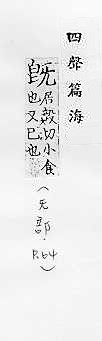 四聲篇海
旣居毅切小食
也又已也
(无部.P.64)